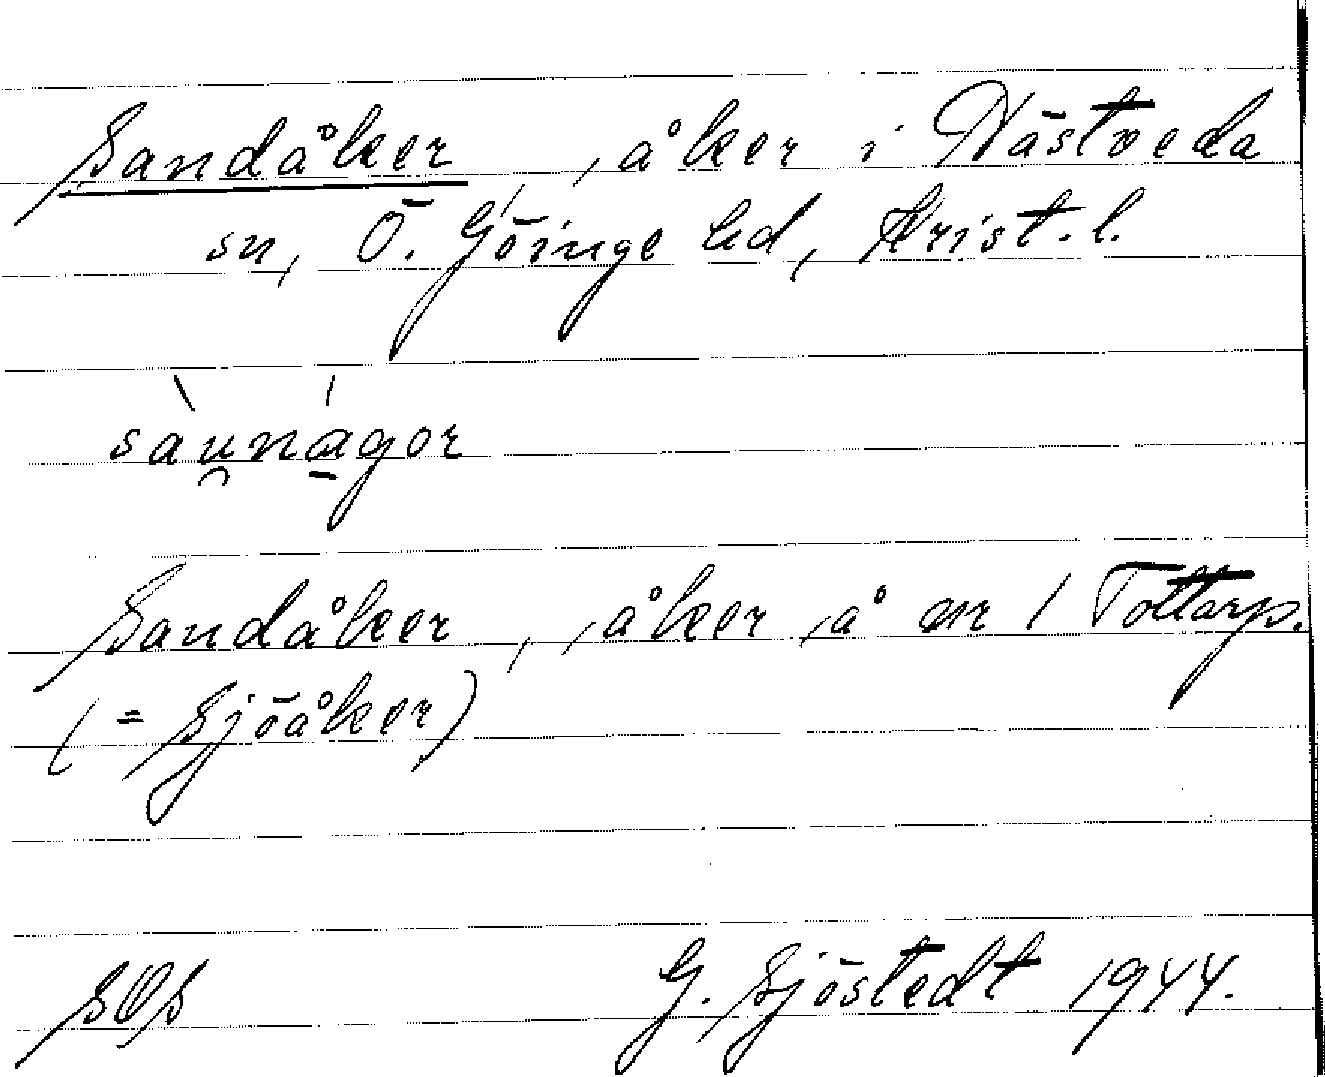 Sandåker, åker i Västveda
sn, Ö. Göinge hd, Krist. l.
saunagor
Sandåker, åker å nr 1 Tottarp.
(= Sjöåker)
G. Sjöstedt 1944.